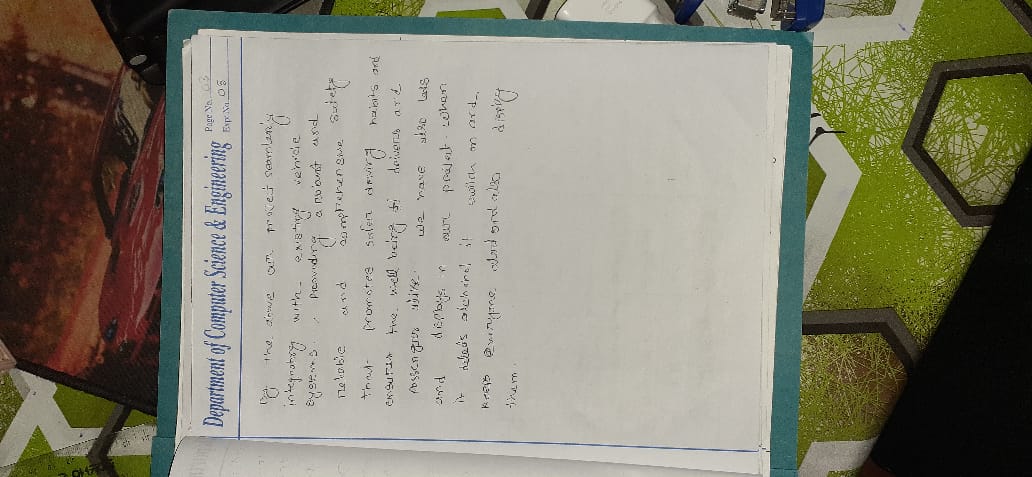 Department of Computer Science & Engineering
Page No. 03
Expt. No. 03
By the above our project seamlenly
integrating with existing vehicle
systems. Providing a robust and
reliable and comprehensive safety
that promotes safer driving habits and
ensures the well being of drivers and
passengers alike. We have also leds
and displays in our project when
it detects alchohol it switch on and
keep everyone alord and also display
them.